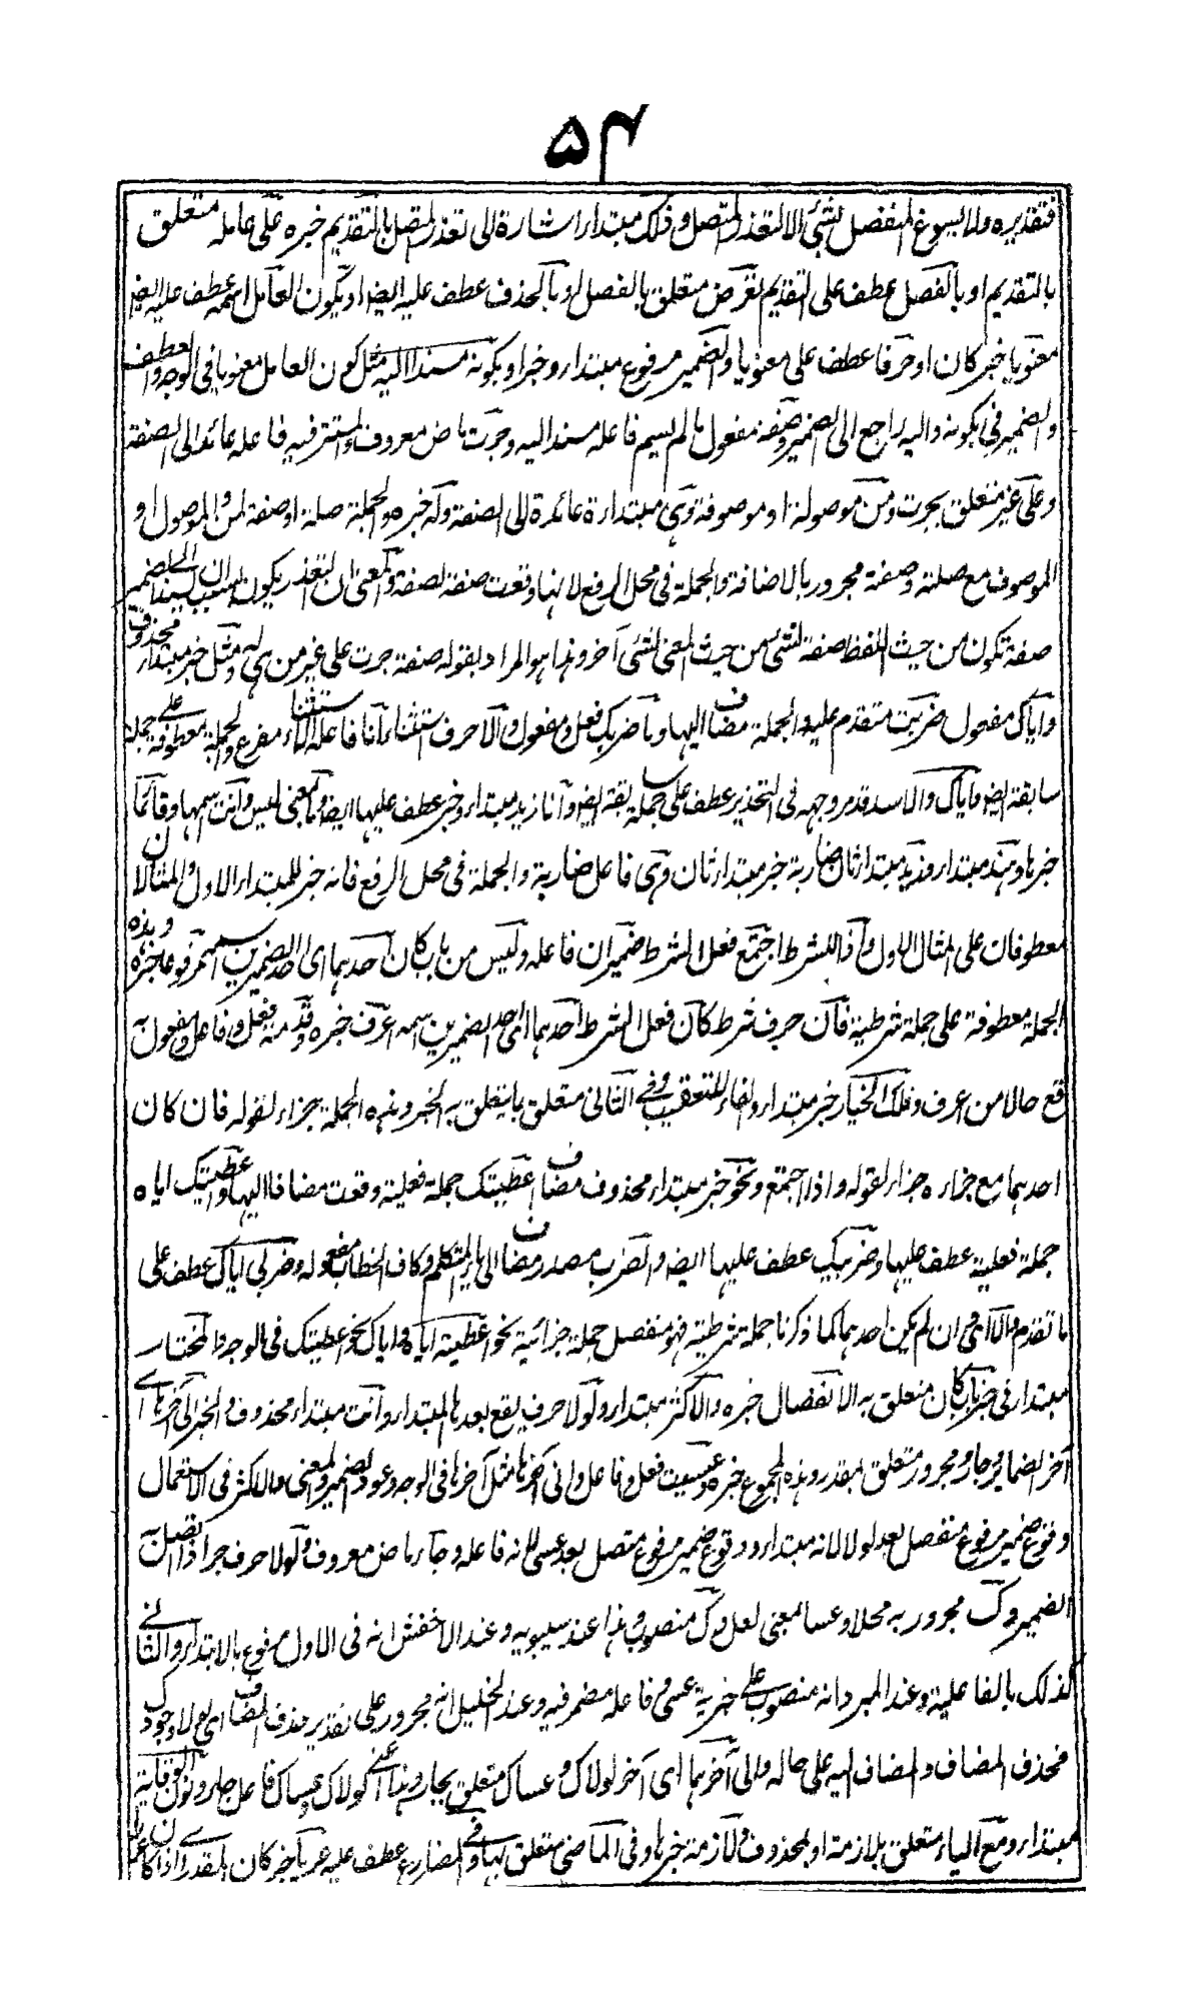 ۵۴
فتقديره ولا يسوغ المنفصل لشئ الا لتعذر المتصل وذلك مبتدا اشارة الى تعذر المتصل بالتقديم خبره على عامله متعلق
بالتقديم او بالفصل عطف على التقديم لغرض متعلق بالفصل او بالحذف عطف عليه ايضا او بكون العامل اسمه عطف عليه ايضا
معنويا خبر كان او حرفا عطف على معنويا والضمير مرفوع مبتدا وخبرا وبكونه مسندا اليه مثل كون العامل معنويا في الوجه والعطف
والضمير في بكونه واليه راجع الى الضمير وصفة مفعول ما لم يسم فاعله مسند اليه وجرت ماض معروف والمستتر فيه فاعله عائد الى الصفة
وعلى غير متعلق بجرت ومن موصولة او موصوفة وهي مبتدا عائدة الى الصفة وله خبره والجملة صلة او صفة لمن والموصول او
الموصوف مع صلته وصفته مجرور بالاضافة والجملة في محل الرفع لانها وقعت صفة لصفة والمعنى ان التعذر يكون بسبب ان يسند الى الضمير
صفة تكون من حيث اللفظ صفة لشئ ومن حيث المعنى لشئ آخر وهذا هو المراد بقوله صفة جرت على غير من هي له ومثل خبر مبتدا محذوف
واياك مفعول ضربت متقدم عليه والجملة مضاف اليها وما ضربك فعل ومفعول والا حرف استثناء وانا فاعله الاستثناء مفرغ والجملة معطوفة على جملة
سابقة ايضا واياك والاسد قد مر وجهه في التحذير عطف على جملة سابقة ايضا وانا زيد مبتدا وخبر عطف عليها ايضا وما بمعنى ليس وانت اسمها وقائما
خبرها وهند مبتدا وزيد مبتدا ثان ضاربة خبر مبتدا ثان وهي فاعل ضاربة والجملة في محل الرفع فانه خبر للمبتدا الاول والمثالان
معطوفان على المثال الاول واذا للشرط اجتمع فعل الشرط ضميران فاعله وليس من باب كان احدهما اى احد الضميرين اسمه مرفوعا خبره وهذه
الجملة معطوفة على جملة شرطية فان حرف شرط كان فعل الشرط احدهما اى احد الضميرين اسمه اعرف خبره وقدمته فعل وفاعل ومفعول به
وقع حالا من اعرف وفلك الخيار خبر مبتدا والفاء للتعقيب وفي الثاني متعلق بما يتعلق به الخبر وهذه الجملة جزاء لقوله فان كان
احدهما مع جزاءه جزاء لقوله واذا اجتمع ونحو خبر مبتدا محذوف مضاف اعطيتك جملة فعلية وقعت مضافا اليها واعطيتك اياه
جملة فعلية عطف عليها وضربيك عطف عليها ايضا والضرب مصدر مضاف الى ياء المتكلم وكاف الخطاب مفعوله وضربي اياك عطف على
ما تقدم والا اى وان لم يكن احدهما كما ذكرنا جملة شرطية فهو منفصل جملة جزائية نحو اعطيته اياه او اياك نحو اعطيتك في الوجه والمختار
مبتدا في خبر باب كان متعلق به الانفصال خبره والاكثر مبتدا ولولا حرف يقع بعدها المبتدا وانت مبتدا محذوف الخبر الى آخرها اى
آخر الضمائر جار ومجرور متعلق بمقدر وهذه المجموع خبره وعسيت فعل وفاعل والى آخرها مثل آخرها في الوجه وعود الضمير والمعنى والاكثر في الاستعمال
وقوع ضمير مرفوع منفصل بعد لولا لانه مبتدا ووقوع ضمير مرفوع متصل بعد عسى لانه فاعله وجاء ماض معروف ولولا حرف جر اذا اتصل به
الضمير وك مجرور به محلا وعسا بمعنى لعل وك منصوب وهذا عند سيبويه وعند الاخفش انه في الاول مرفوع بالابتداء وفي الثاني
كذلك بالفاعلية وعند المبرد انه منصوب على خبرية عسى وفاعله مضمر فيه وعند الخليل انه مجرور على تقدير حذف المضاف اى لولا وجودك
فحذف المضاف والمضاف اليه على حاله والى آخرهما اى آخر لولاك وعساك متعلق بجاء وهذا اعنى لولاك وعساك فاعل جاء ونون الوقاية
مبتدا ومع الياء متعلق بلازمة او المحذوف ولازمة خبرها وفي الماضي متعلق بها وفي المضارع عطف عليه عريا خبر كان المقدر اذا كان